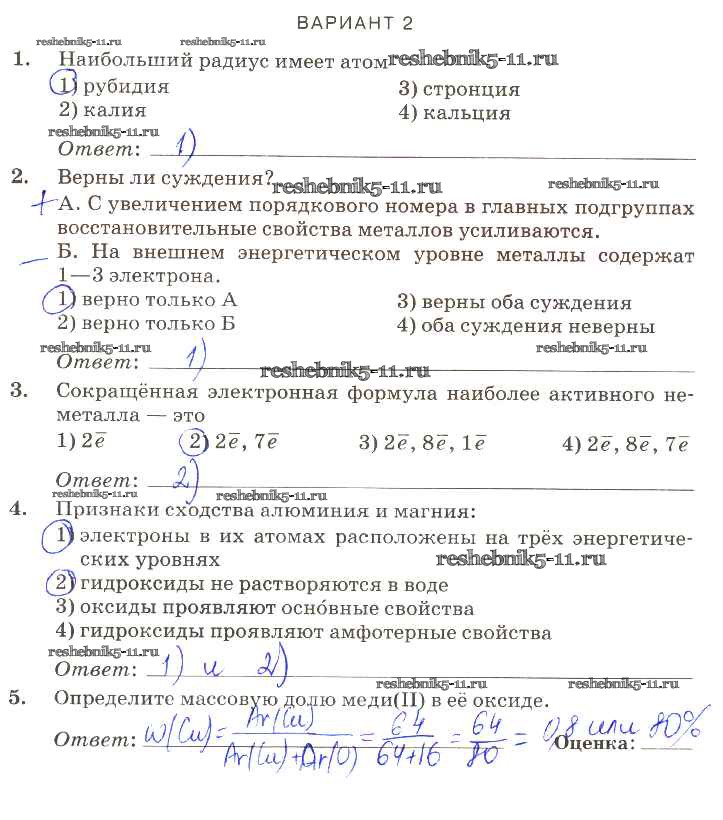 ВАРИАНТ 2
reshebnik5-11.ru reshebnik5-11.ru
1. Наибольший радиус имеет атом reshebnik5-11.ru
1) рубидия 3) стронция
2) калия 4) кальция
reshebnik5-11.ru
Ответ: 1)
2. Верны ли суждения? reshebnik5-11.ru reshebnik5-11.ru
+ А. С увеличением порядкового номера в главных подгруппах
восстановительные свойства металлов усиливаются.
— Б. На внешнем энергетическом уровне металлы содержат
1—3 электрона.
1) верно только А 3) верны оба суждения
2) верно только Б 4) оба суждения неверны
reshebnik5-11.ru reshebnik5-11.ru
Ответ: 1) reshebnik5-11.ru
3. Сокращённая электронная формула наиболее активного не-
металла — это
1) 2e̅ 2) 2e̅, 7e̅ 3) 2e̅, 8e̅, 1e̅ 4) 2e̅, 8e̅, 7e̅
Ответ: 2)
reshebnik5-11.ru reshebnik5-11.ru
4. Признаки сходства алюминия и магния:
1) электроны в их атомах расположены на трёх энергетиче-
ских уровнях reshebnik5-11.ru
2) гидроксиды не растворяются в воде
3) оксиды проявляют оснóвные свойства
4) гидроксиды проявляют амфотерные свойства
reshebnik5-11.ru
Ответ: 1) и 2)
reshebnik5-11.ru reshebnik5-11.ru
5. Определите массовую долю меди(II) в её оксиде.
Ответ: W(Cu) = Ar(Cu) / Ar(Cu)+Ar(O) = 64 / 64+16 = 64 / 80 = 0,8 или 80%
Оценка: